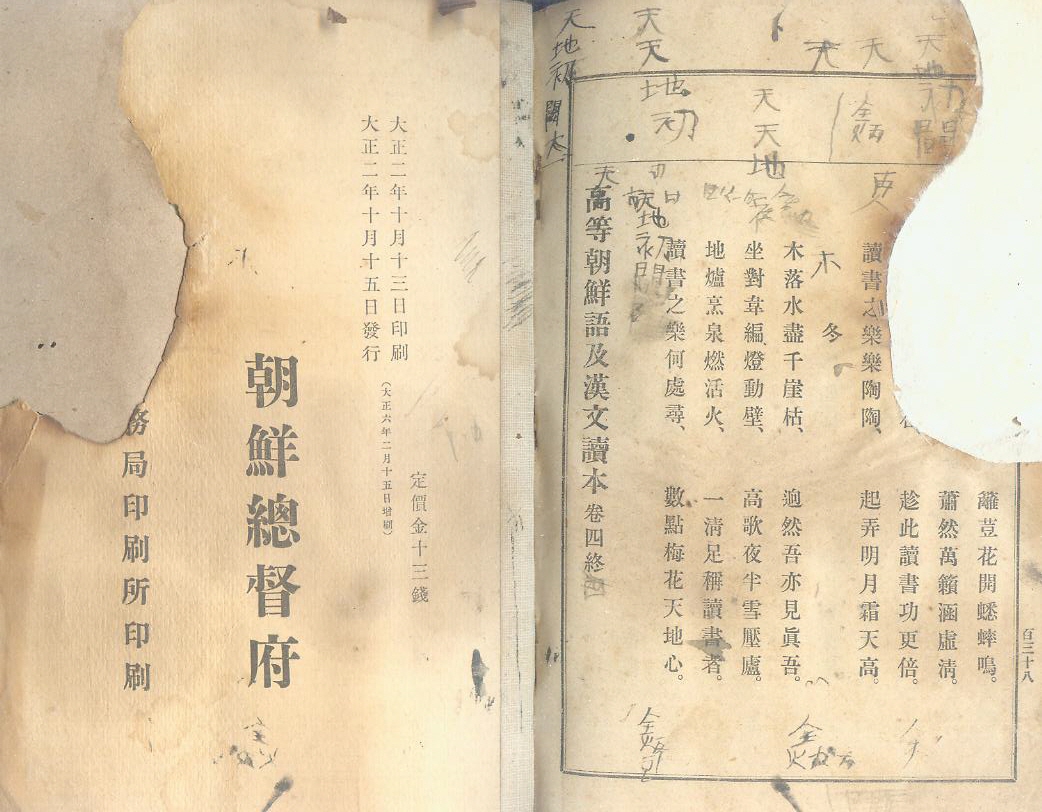 百三十八
籬荳花開蟋蟀鳴。
蕭然萬籟涵虛淸。
趁此讀書功更倍。
讀書之樂樂陶陶、 起弄明月霜天高。
冬
木落水盡千崖枯、 逈然吾亦見眞吾。
坐對韋編燈動壁、 高歌夜半雪壓廬。
地爐烹泉燃活火、 一淸足稱讀書者。
讀書之樂何處尋、 數點梅花天地心。
高等朝鮮語及漢文讀本 卷四終
天
天
木
天天地
天天地初
天地初開
定價金十三錢
大正二年十月十三日印刷
大正二年十月十五日發行
(大正六年二月十五日增刷)
朝鮮總督府
務局印刷所印刷